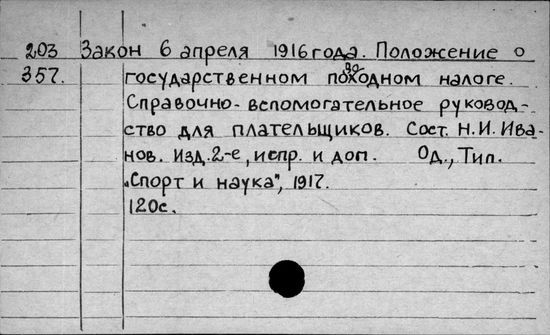 203 Закон 6 апреля 1916 года. Положение о
357. государственном подоходном налоге.
Справочно-вспомогательное руковод-
ство для плательщиков. Сост. Н.И. Ива-
нов. Изд. 2-е, испр. и доп. Од., Тип.
„Спорт и наука", 1917.
120с.